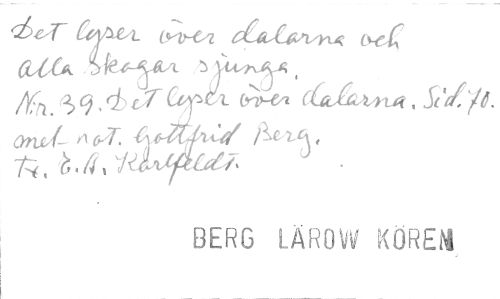 Det lyser över dalarna och
alla skogar sjunga.
N:r. 39. Det lyser över dalarna. Sid. 70.
mel. not. Gottfrid Berg.
tx. E. A. Karlfeldt.
BERG LÄROW KÖREN